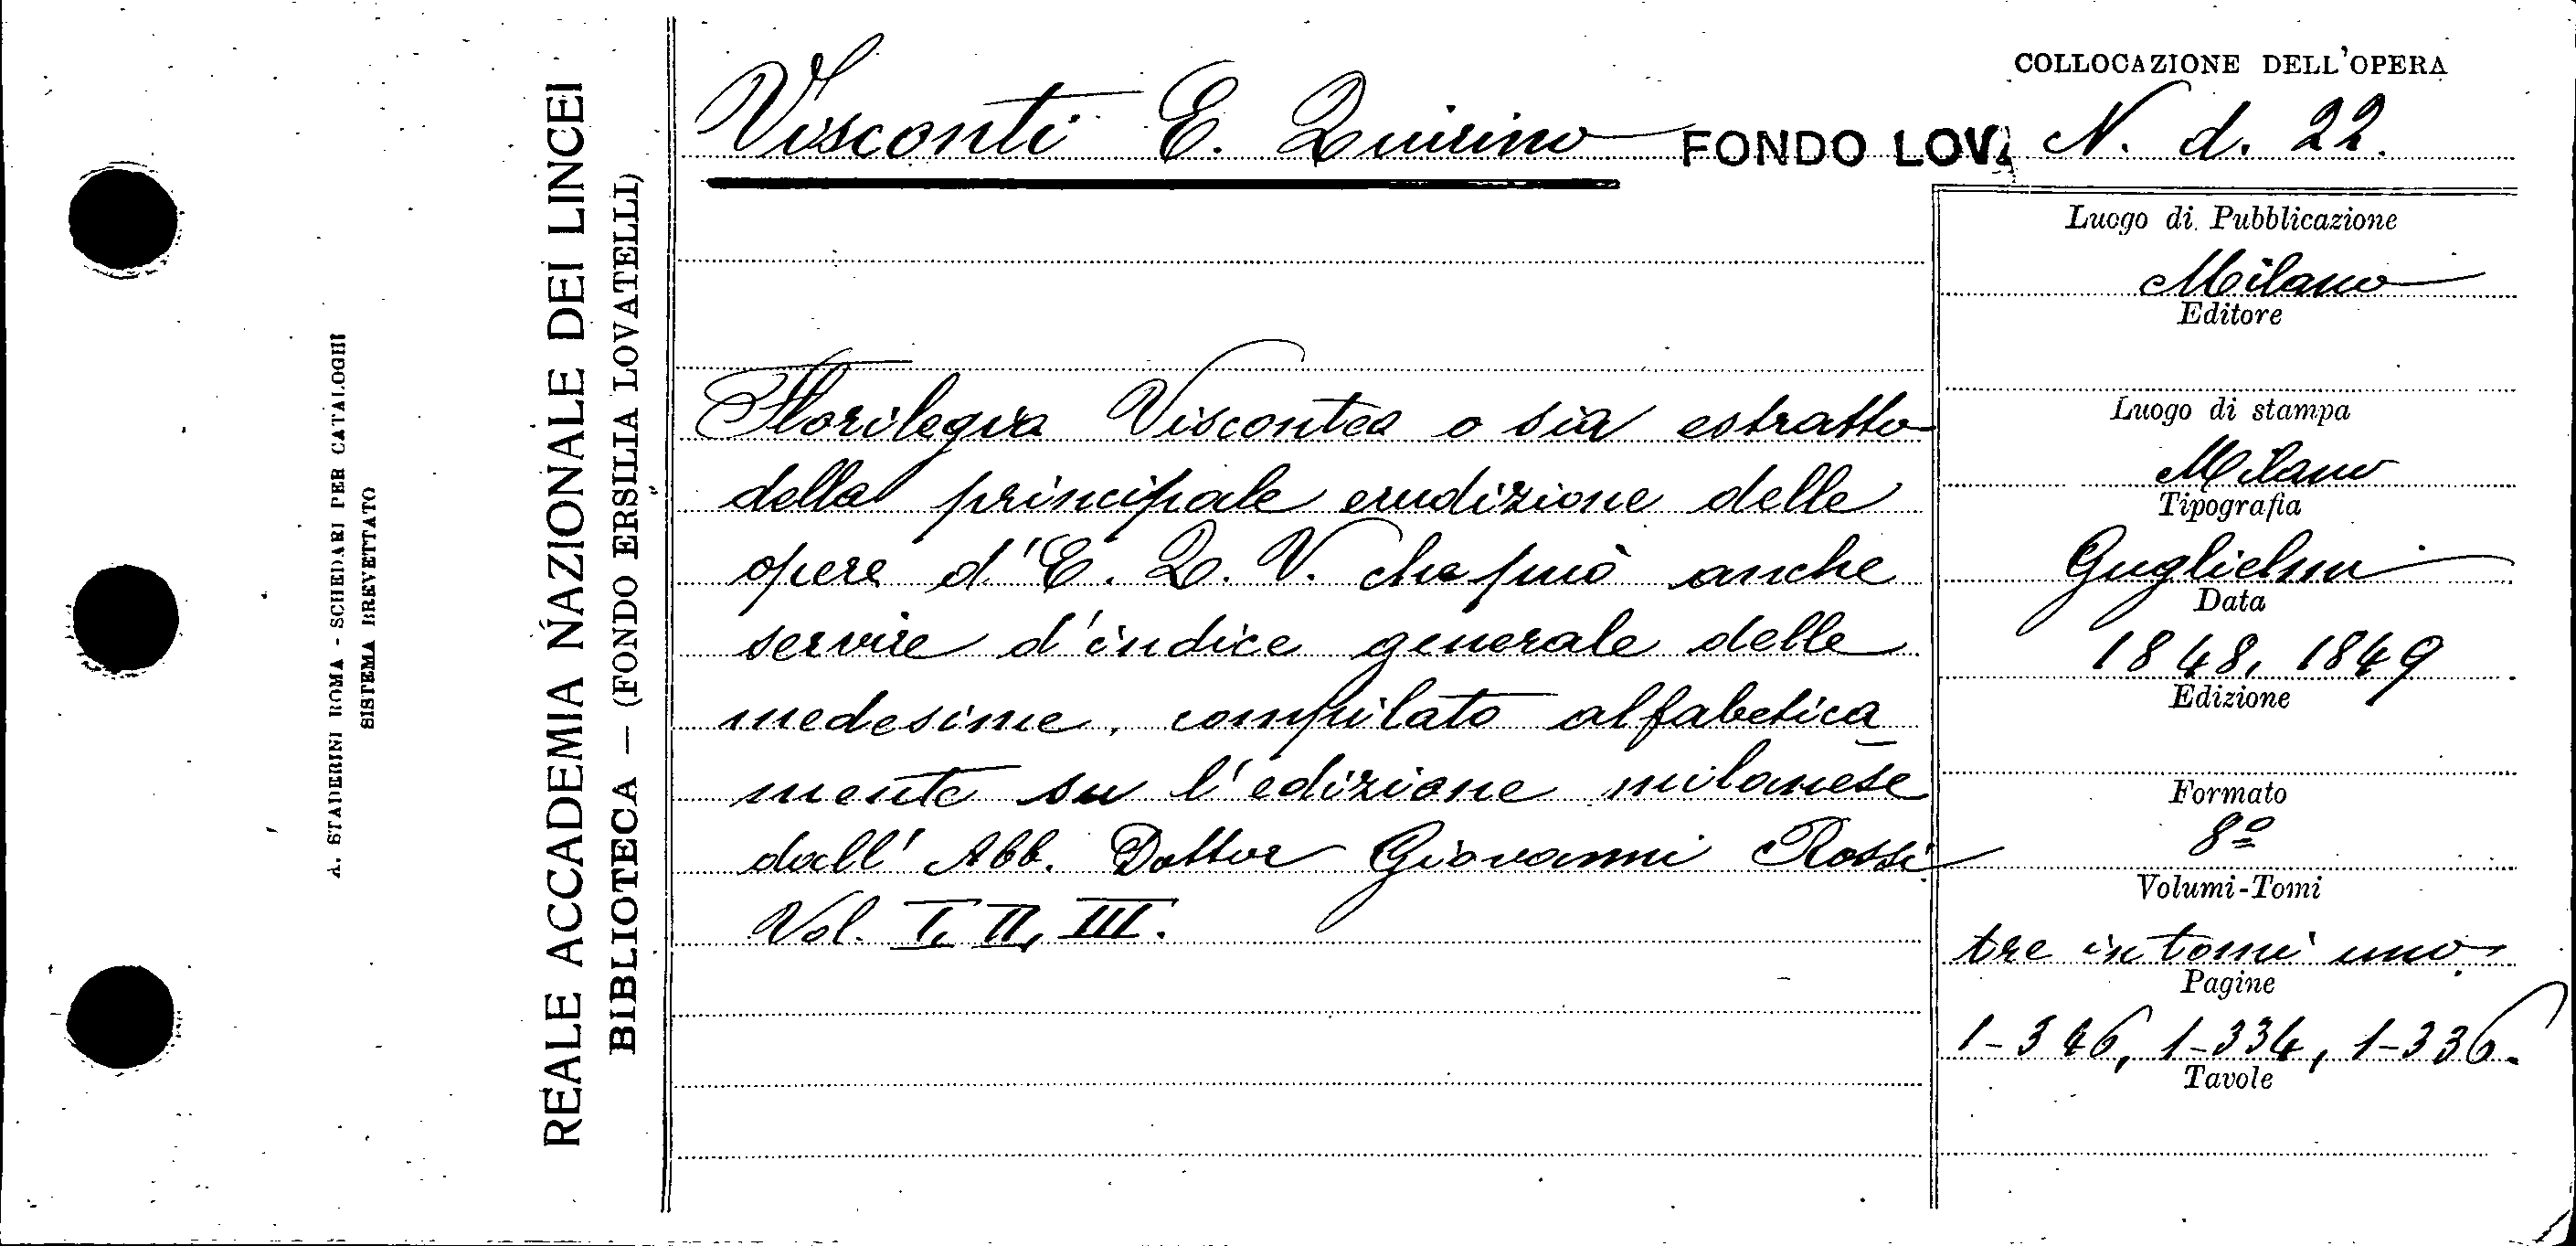 A. STADERINI ROMA - SCHEDARI PER CATALOGHI
SISTEMA BREVETTATO
REALE ACCADEMIA NAZIONALE DEI LINCEI
BIBLIOTECA — (FONDO ERSILIA LOVATELLI)
Visconti E. Quirino
FONDO LOV.
COLLOCAZIONE DELL'OPERA
N. d. 22.
Florilegio Visconteo o sia estratto
della principale erudizione delle
opere d'E. Q. V. che può anche
servire d'indice generale delle
medesime, compilato alfabetica
mente su l'edizione milanese
dall' Abb. Dottor Giovanni Rossi
Vol. I, II, III.
Luogo di Pubblicazione
Milano
Editore
Luogo di stampa
Milano
Tipografia
Guglielmi
Data
1848, 1849
Edizione
Formato
8º
Volumi-Tomi
tre in tomi uno
Pagine
1-346, 1-334, 1-336.
Tavole